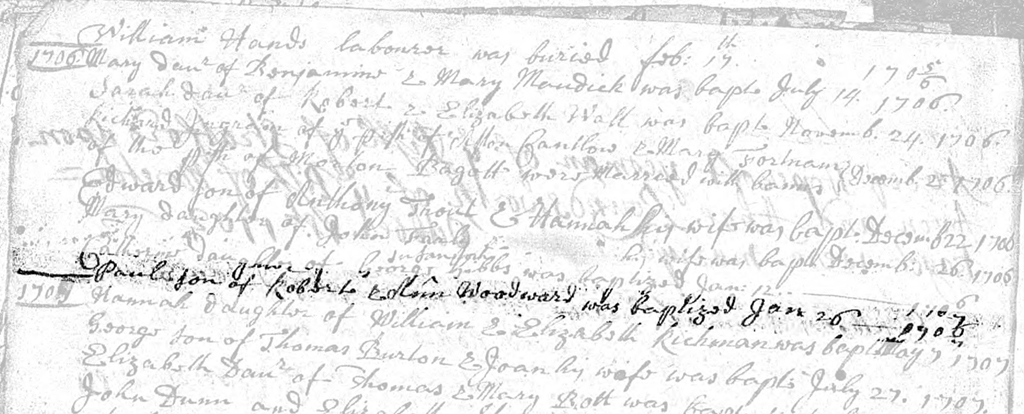 William Hands labourer was buried feb: 17th 1705/6
1706 Mary daur of Benjamine & Mary Maudick was bapt July 14. 1706.
Sarah daur of Robert & Elizabeth Wall was bapt Novemb. 24. 1706.
Richard of ye psh of Cantlow & Mary Fortnam
of the psh of Morton Bagott were Married with banns Decemb. 1706.
Edward son of Anthony Trout & Hannah his wife was bapt Decemb 22 1706
Mary daughter of John & Susannah his wife was bapt Decemb. 26. 1706
daughter of George was baptized Jan: 12
Paul son of Robert & Ann Woodward was baptized Jan 26 1706/7
1707 Hannah daughter of William & Elizabeth Richman was bapt May 7 1707
George son of Thomas Burton & Joan his wife was bapt July 27. 1707
Elizabeth Daur of Thomas & Mary Bott was bapt 1707
John Dunn and